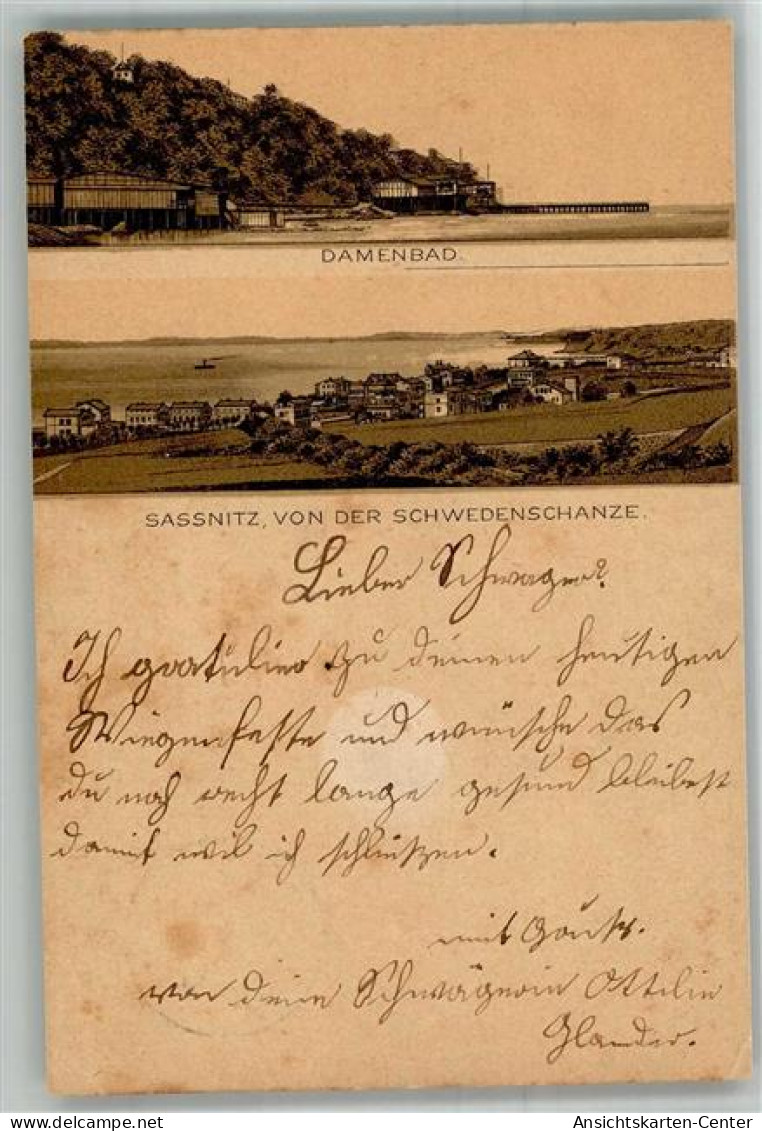 DAMENBAD.
SASSNITZ, VON DER SCHWEDENSCHANZE.
Lieber Schwager!
Ich gratulier zu deinen heutigen
Wiegenfeste und wünsche das
du noch recht lange gesund bleibest
damit wil ich schließen.
mit Gruß.
von deine Schwägerin Ottilie
Glander.
Ansichtskarten-Center